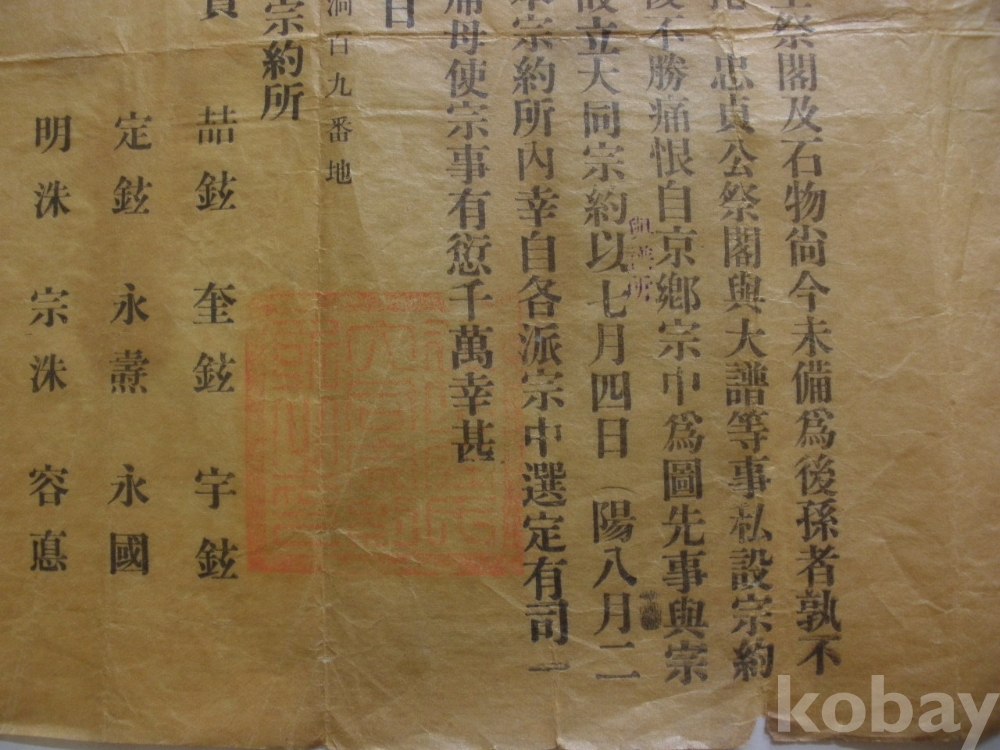 祭閣及石物尙今未備爲後孫者孰不
忠貞公祭閣與大譜等事私設宗約
後不勝痛恨自京鄕宗中爲圖先事與宗
設立大同宗約以七月四日（陽八月二
本宗約所內幸自各派宗中選定有司一
席毋使宗事有愆千萬幸甚
日
洞百九番地
宗約所
員 喆鉉 奎鉉 宇鉉
定鉉 永燾 永國
明洙 宗洙 容悳
kobay